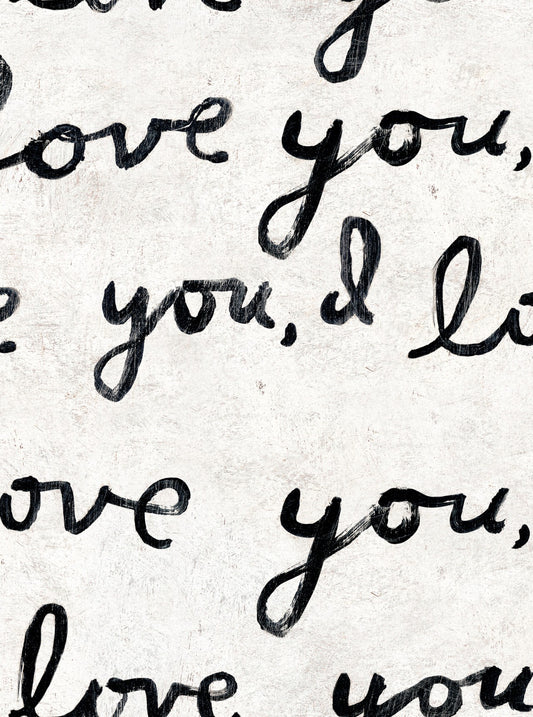 love y
love you,
e you, I lo
ove you,
love you